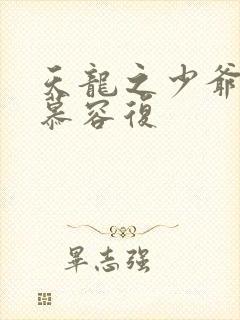 天龍之少爺
慕容復
畢志强